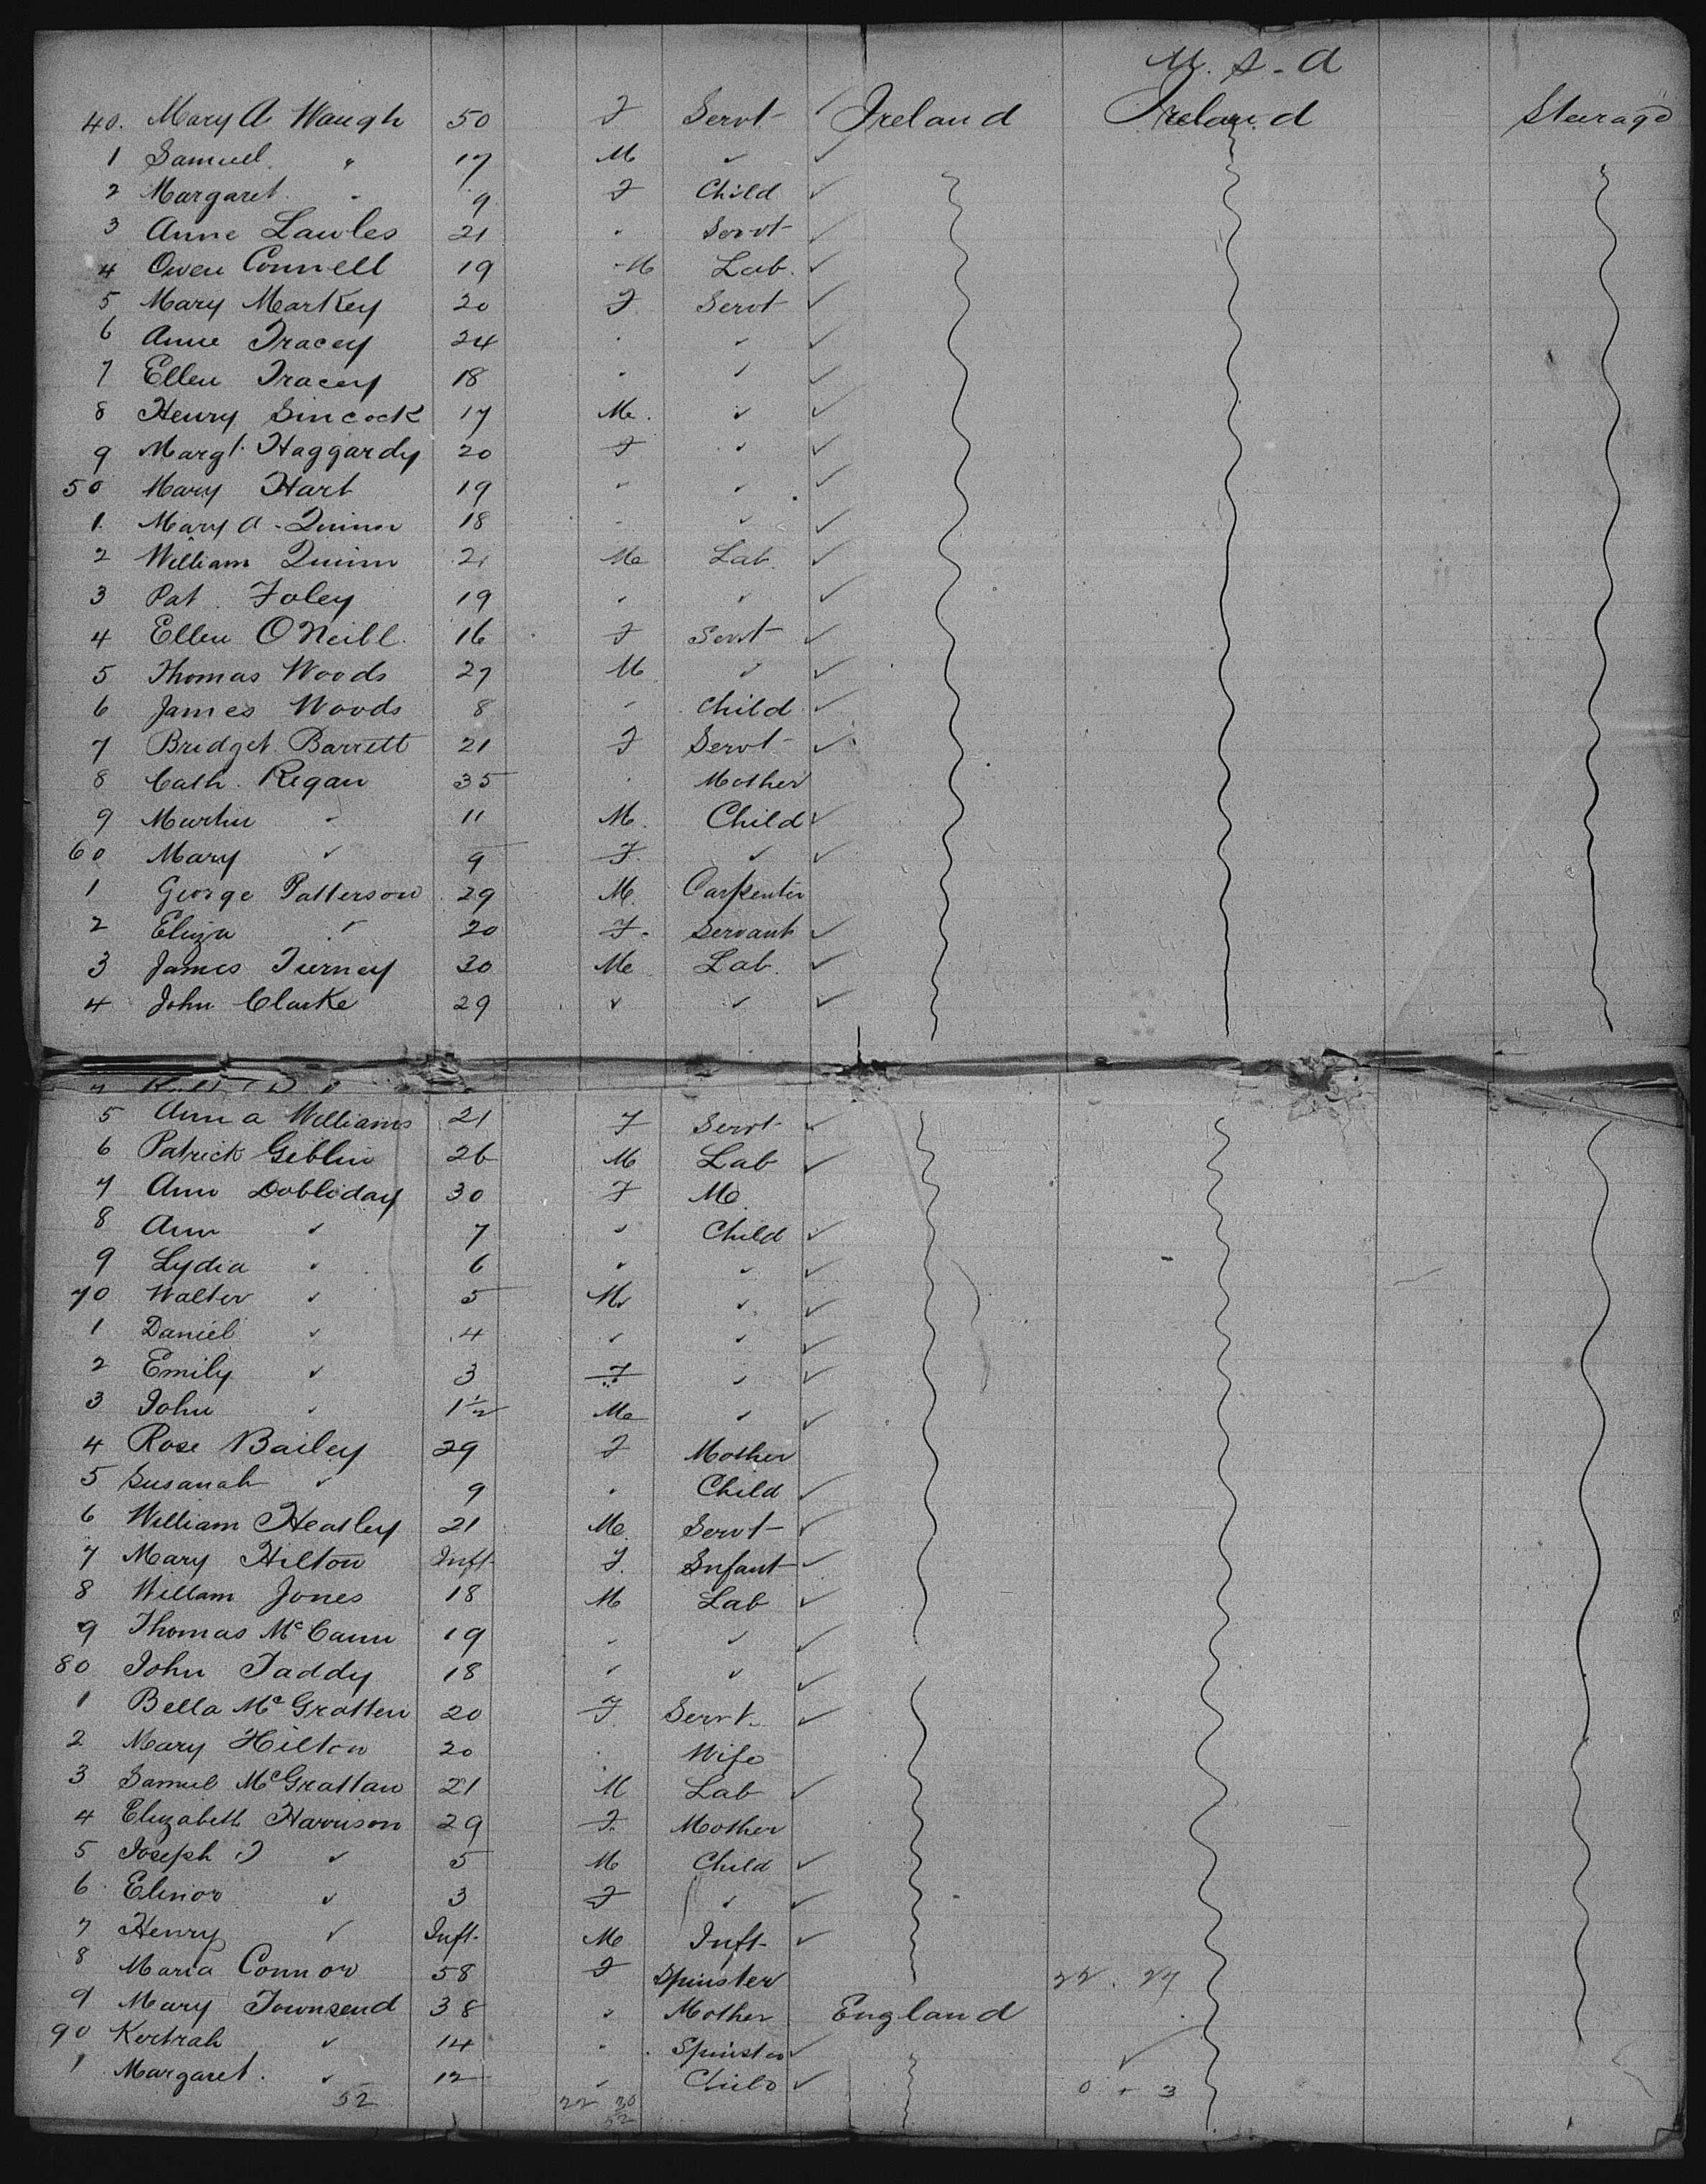 U. S. A
40. Mary A Waugh 50 F Servt ✓ Ireland Ireland Steerage
1 Samuel " 17 M ✓ ✓
2 Margaret " 9 F Child ✓
3 Anne Lawles 21 " Servt ✓
4 Owen Connell 19 M Lab. ✓
5 Mary Markey 20 F Servt ✓
6 Anne Tracey 24 " ✓ ✓
7 Ellen Tracey 18 " ✓ ✓
8 Henry Sincock 17 M. ✓ ✓
9 Margt. Haggardy 20 F ✓ ✓
50 Mary Hart 19 " ✓ ✓
1. Mary A - Quinn 18 " ✓ ✓
2 William Quinn 21 M Lab. ✓
3 Pat. Foley 19 " " ✓
4 Ellen O Neill. 16 F Servt ✓
5 Thomas Woods 27 M ✓ ✓
6 James Woods 8 " Child ✓
7 Bridget Barrett 21 F Servt ✓
8 Cath. Regan 35 " Mother
9 Martin " 11 M. Child ✓
60 Mary ✓ 9 F. ✓ ✓
1 George Patterson 29 M. Carpenter
2 Eliza " 20 F. Servant ✓
3 James Tierney 30 M Lab. ✓
4 John Clarke 29 ✓ ✓ ✓
5 Ann a Williams 21 F Servt ✓
6 Patrick Giblin 26 M Lab ✓
7 Ann Dobliday 30 F Mo
8 Ann ✓ 7 ✓ Child ✓
9 Lydia ✓ 6 ✓ ✓ ✓
70 Walter ✓ 5 M ✓ ✓
1 Daniel ✓ 4 ✓ ✓ ✓
2 Emily ✓ 3 F ✓ ✓
3 John ✓ 1½ M ✓ ✓
4 Rose Bailey 29 F Mother
5 Susanah ✓ 9 " Child ✓
6 William Heatley 21 M. Servt ✓
7 Mary Hilton Inft F. Infant ✓
8 Willam Jones 18 M Lab ✓
9 Thomas McCann 19 ✓ ✓ ✓
80 John Taddy 18 ✓ ✓ ✓
1 Bella McGratten 20 F. Servt. ✓
2 Mary Hilton 20 " Wife
3 Samuel McGrattan 21 M Lab ✓
4 Elizabeth Harrison 29 F. Mother
5 Joseph J ✓ 5 M Child ✓
6 Elinor ✓ 3 F ✓ ✓
7 Henry ✓ Inft. M Inft ✓
8 Maria Connor 58 F Spinster 22. 27
9 Mary Townsend 38 ✓ Mother England
90 Kertrah ✓ 14 " Spinster ✓ ✓
1 Margaret. ✓ 12 ✓ Child ✓ 0 + 3
52 22 30
52